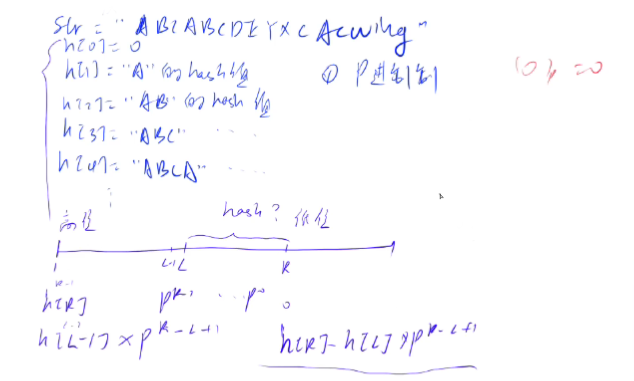 Str = "ABCABCDEYXCAcwing"
h[0] = 0
h[1] = "A" 的hash值
① P进制
h[2] = "AB" 的hash值
h[3] = "ABC" ....
h[4] = "ABCA" .....
hash?
高位
低位
1 L-1 L R
h[R] p^{R-1} ... p^0
h[L-1] × p^{R-L+1}
h[R] - h[L] × p^{R-L+1}